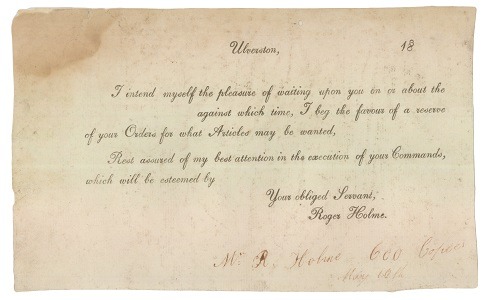 Ulverston, 18
I intend myself the pleasure of waiting upon you on or about the
against which time, I beg the favour of a reserve
of your Orders for what Articles may be wanted,
Rest assured of my best attention in the execution of your Commands,
which will be esteemed by
Your obliged Servant,
Roger Holme.
Mr. R. Holme 600 Copies